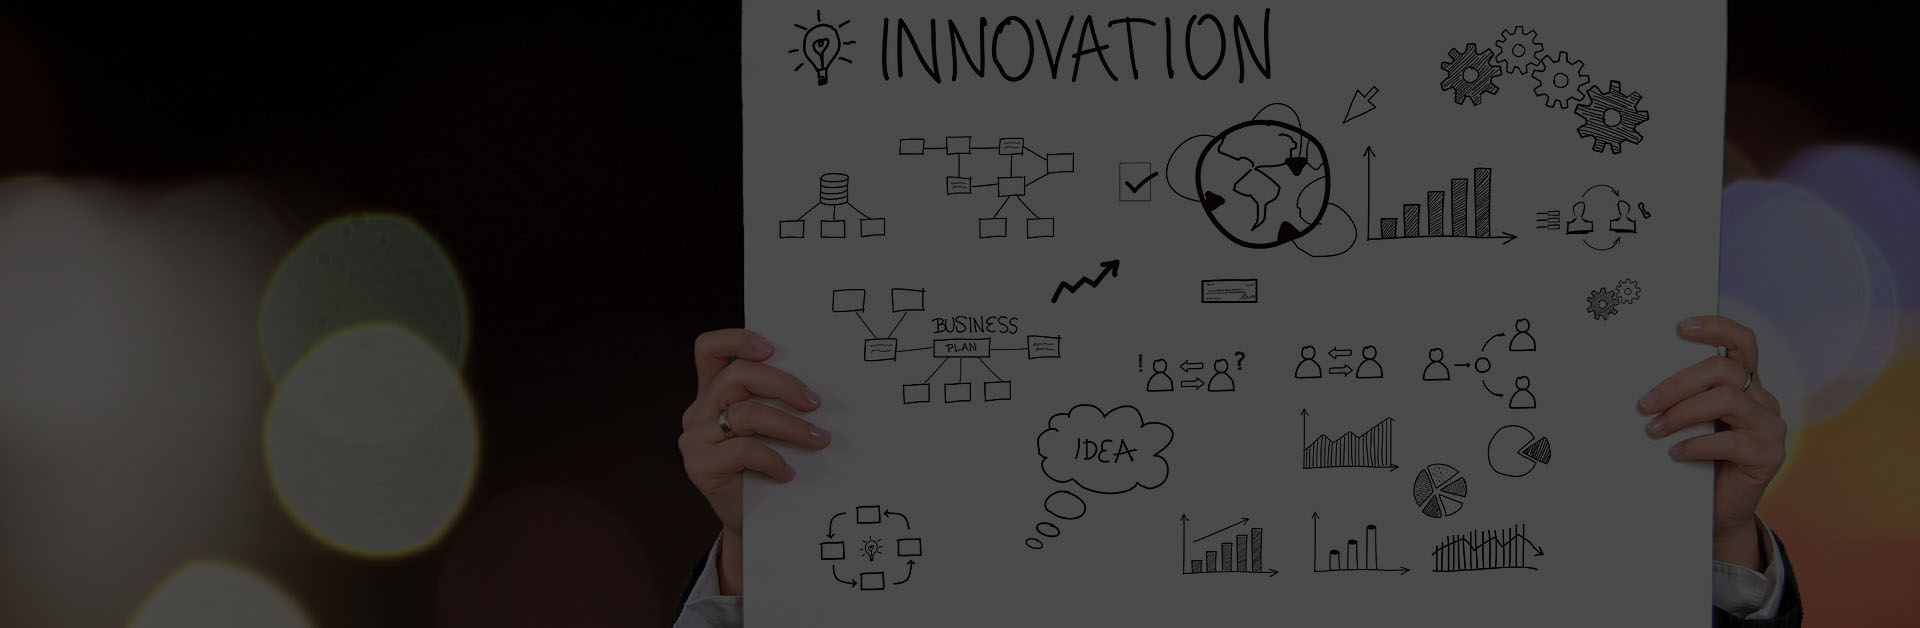 INNOVATION
BUSINESS
PLAN
! ?
IDEA